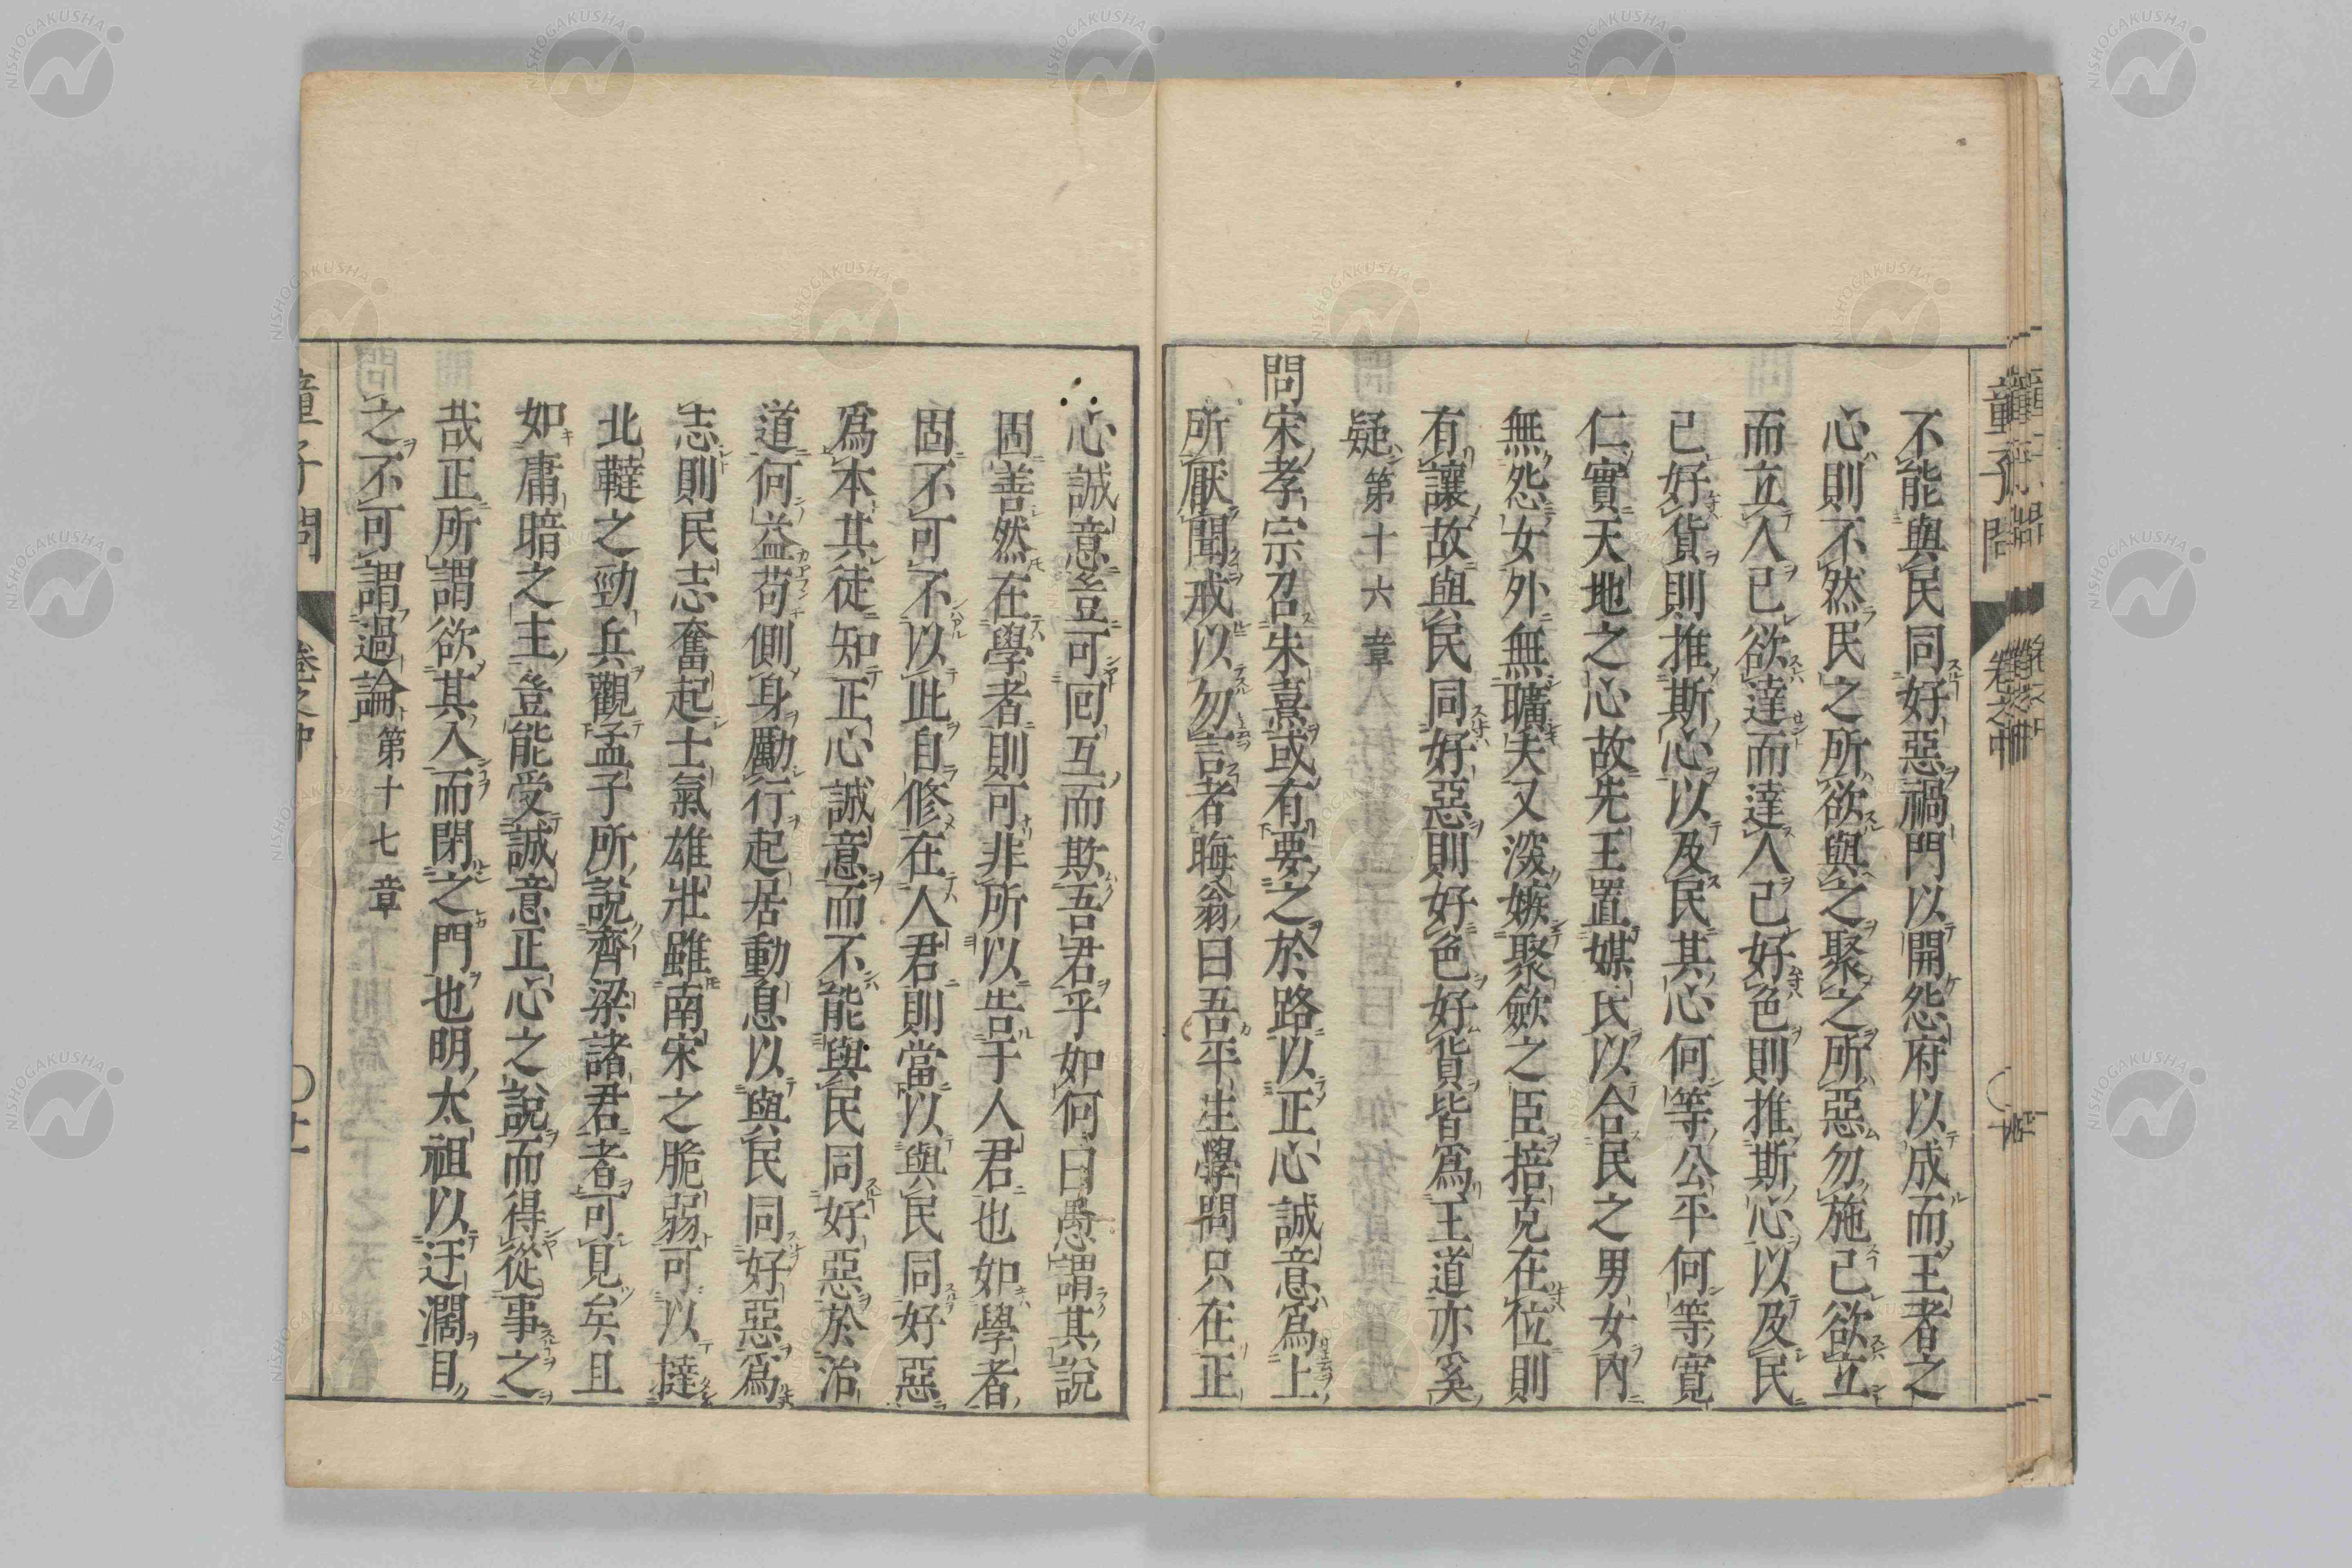 不能與民同好惡禍門以開怨府以成而王者之
心則不然民之所欲與之聚之所惡勿施己欲立
而立人己欲達而達人己好色則推斯心以及民
己好貨則推斯心以及民其心何等公平何等寬
仁實天地之心故先王置媒氏以合民之男女內
無怨女外無曠夫又深嫉聚斂之臣掊克在位則
有讓故與民同好惡則好色好貨皆爲王道亦奚
疑第十六章
問宋孝宗召朱熹或有要之於路以正心誠意爲上
所厭聞戒以勿言者晦翁曰吾平生學問只在正
心誠意豈可回互而欺吾君乎如何曰愚謂其說
固善然在學者則可非所以告于人君也如學者
固不可不以此自修在人君則當以與民同好惡
爲本其徒知正心誠意而不能與民同好惡於治
道何益苟側身勵行起居動息以與民同好惡爲
志則民志奮起士氣雄壯雖南宋之脆弱可以撻
北韃之勁兵觀孟子所說齊梁諸君者可見矣且
如庸暗之主豈能受誠意正心之說而得從事之
哉正所謂欲其入而閉之門也明太祖以迂濶目
之不可謂過論第十七章
童子問
卷之中
NISHOGAKUSHA